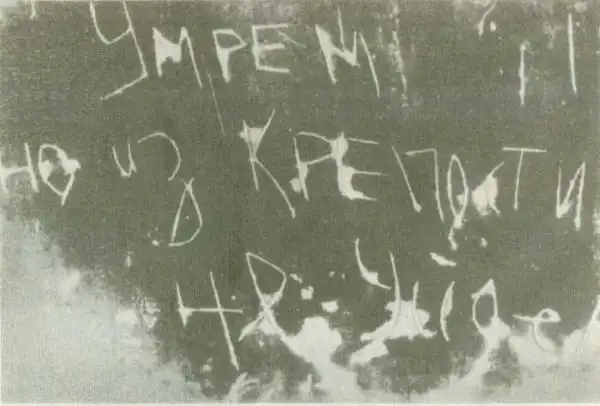 УМРЕМ
НО ИЗ КРЕПОСТИ
НЕ